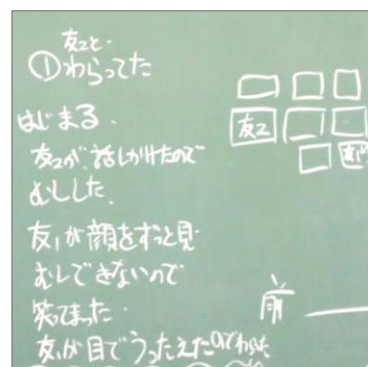 友2と.
①わらってた
はじまる.
友2が、話しかけたので
むしした.
友1が顔をずっと見
むしできないので
笑てまった.
友1が目でうったえたのでわらった
友2
前